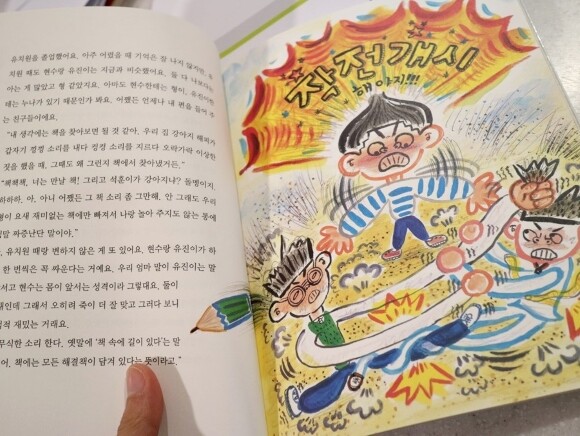 유치원을 졸업했어요. 아주 어렸을 때 기억은 잘 나지 않지만, 유
치원 때도 현수랑 유진이는 지금과 비슷했어요. 둘 다 나보다
아는 게 많았고 형 같았지요. 아마도 현수한테는 형이, 유진이한
테는 누나가 있기 때문인가 봐요. 어쨌든 언제나 내 편을 들어 주
는 친구들이에요.
"내 생각에는 책을 찾아보면 될 것 같아. 우리 집 강아지 해피가
갑자기 컹컹 소리를 내다 낑낑 소리를 지르다 오락가락 이상한
짓을 했을 때, 그때도 왜 그런지 책에서 찾아냈거든."
"책책책, 너는 만날 책! 그리고 석훈이가 강아지냐? 돌멩이지.
하하하. 아, 아니 어쨌든 그 책 소리 좀 그만해. 안 그래도 우리
형이 요새 재미없는 책에만 빠져서 나랑 놀아 주지도 않는 통에
짜증난단 말이야."
유치원 때랑 변하지 않은 게 또 있어요. 현수랑 유진이가 하
한 번씩은 꼭 싸운다는 거예요. 우리 엄마 말이 유진이는 말
서고 현수는 몸이 앞서는 성격이라 그렇대요. 둘이
대인데 그래서 오히려 죽이 더 잘 맞고 그러다 보니
재밌는 거래요.
무식한 소리 한다. 옛말에 '책 속에 길이 있다'는 말
어. 책에는 모든 해결책이 담겨 있다는 뜻이라고."
작전개시
해야지!!!